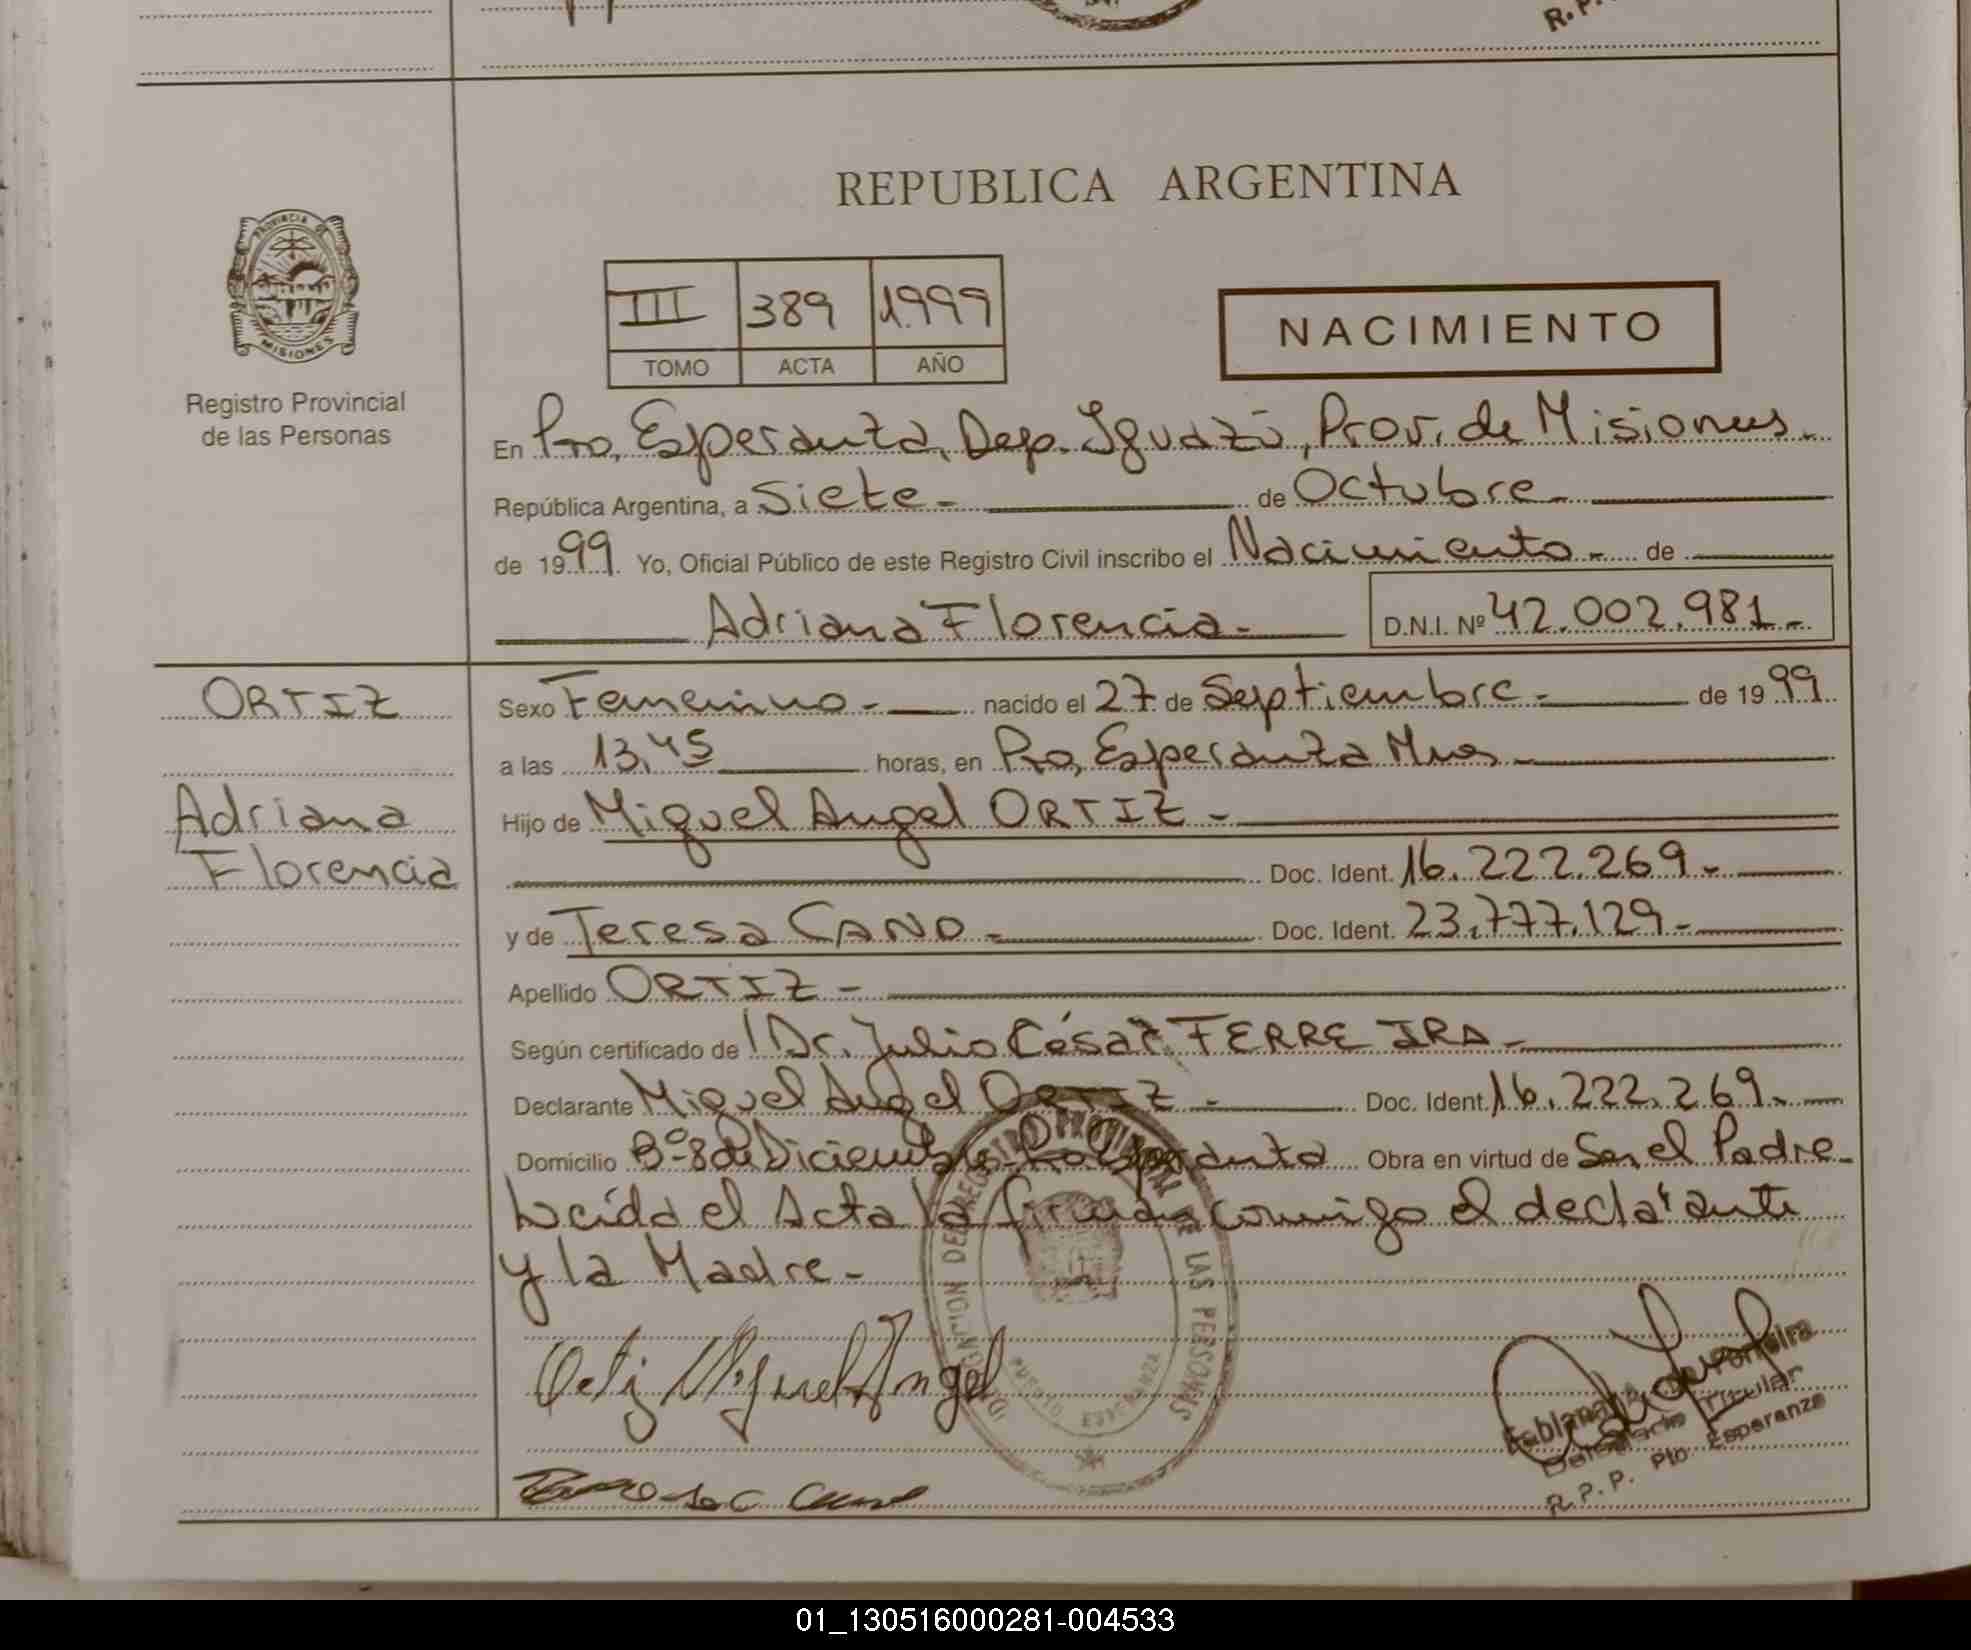 R.P.
REPUBLICA ARGENTINA
PROVINCIA DE
MISIONES
Registro Provincial
de las Personas
III 389 1.999
TOMO ACTA AÑO
NACIMIENTO
En Pto, Esperanza, Dep. Iguazú, Prov. de Misiones.
República Argentina, a Siete - de Octubre -
de 1999 Yo, Oficial Público de este Registro Civil inscribo el Nacimiento - de
Adriana Florencia - D.N.I. Nº 42.002.981 -
ORTIZ
Adriana
Florencia
Sexo Femenino - nacido el 27 de Septiembre - de 1999
a las 13,45 horas, en Pto, Esperanza Mnes -
Hijo de Miguel Angel ORTIZ -
Doc. Ident. 16.222.269 -
y de Teresa CANO - Doc. Ident. 23.777.129 -
Apellido ORTIZ -
Según certificado de Dr. Julio César FERREIRA -
Declarante Miguel Angel ORTIZ - Doc. Ident. 16.222.269 -
Domicilio Bº 8 de Diciembre Pto Esperanza Obra en virtud de Ser el Padre -
Leída el Acta la firman conmigo el declarante
y la Madre -
Ortiz Miguel Angel
DELEGACION DEL REGISTRO PROVINCIAL DE LAS PERSONAS
PUERTO ESPERANZA
Titular
R.P.P. Pto. Esperanza
01_130516000281-004533